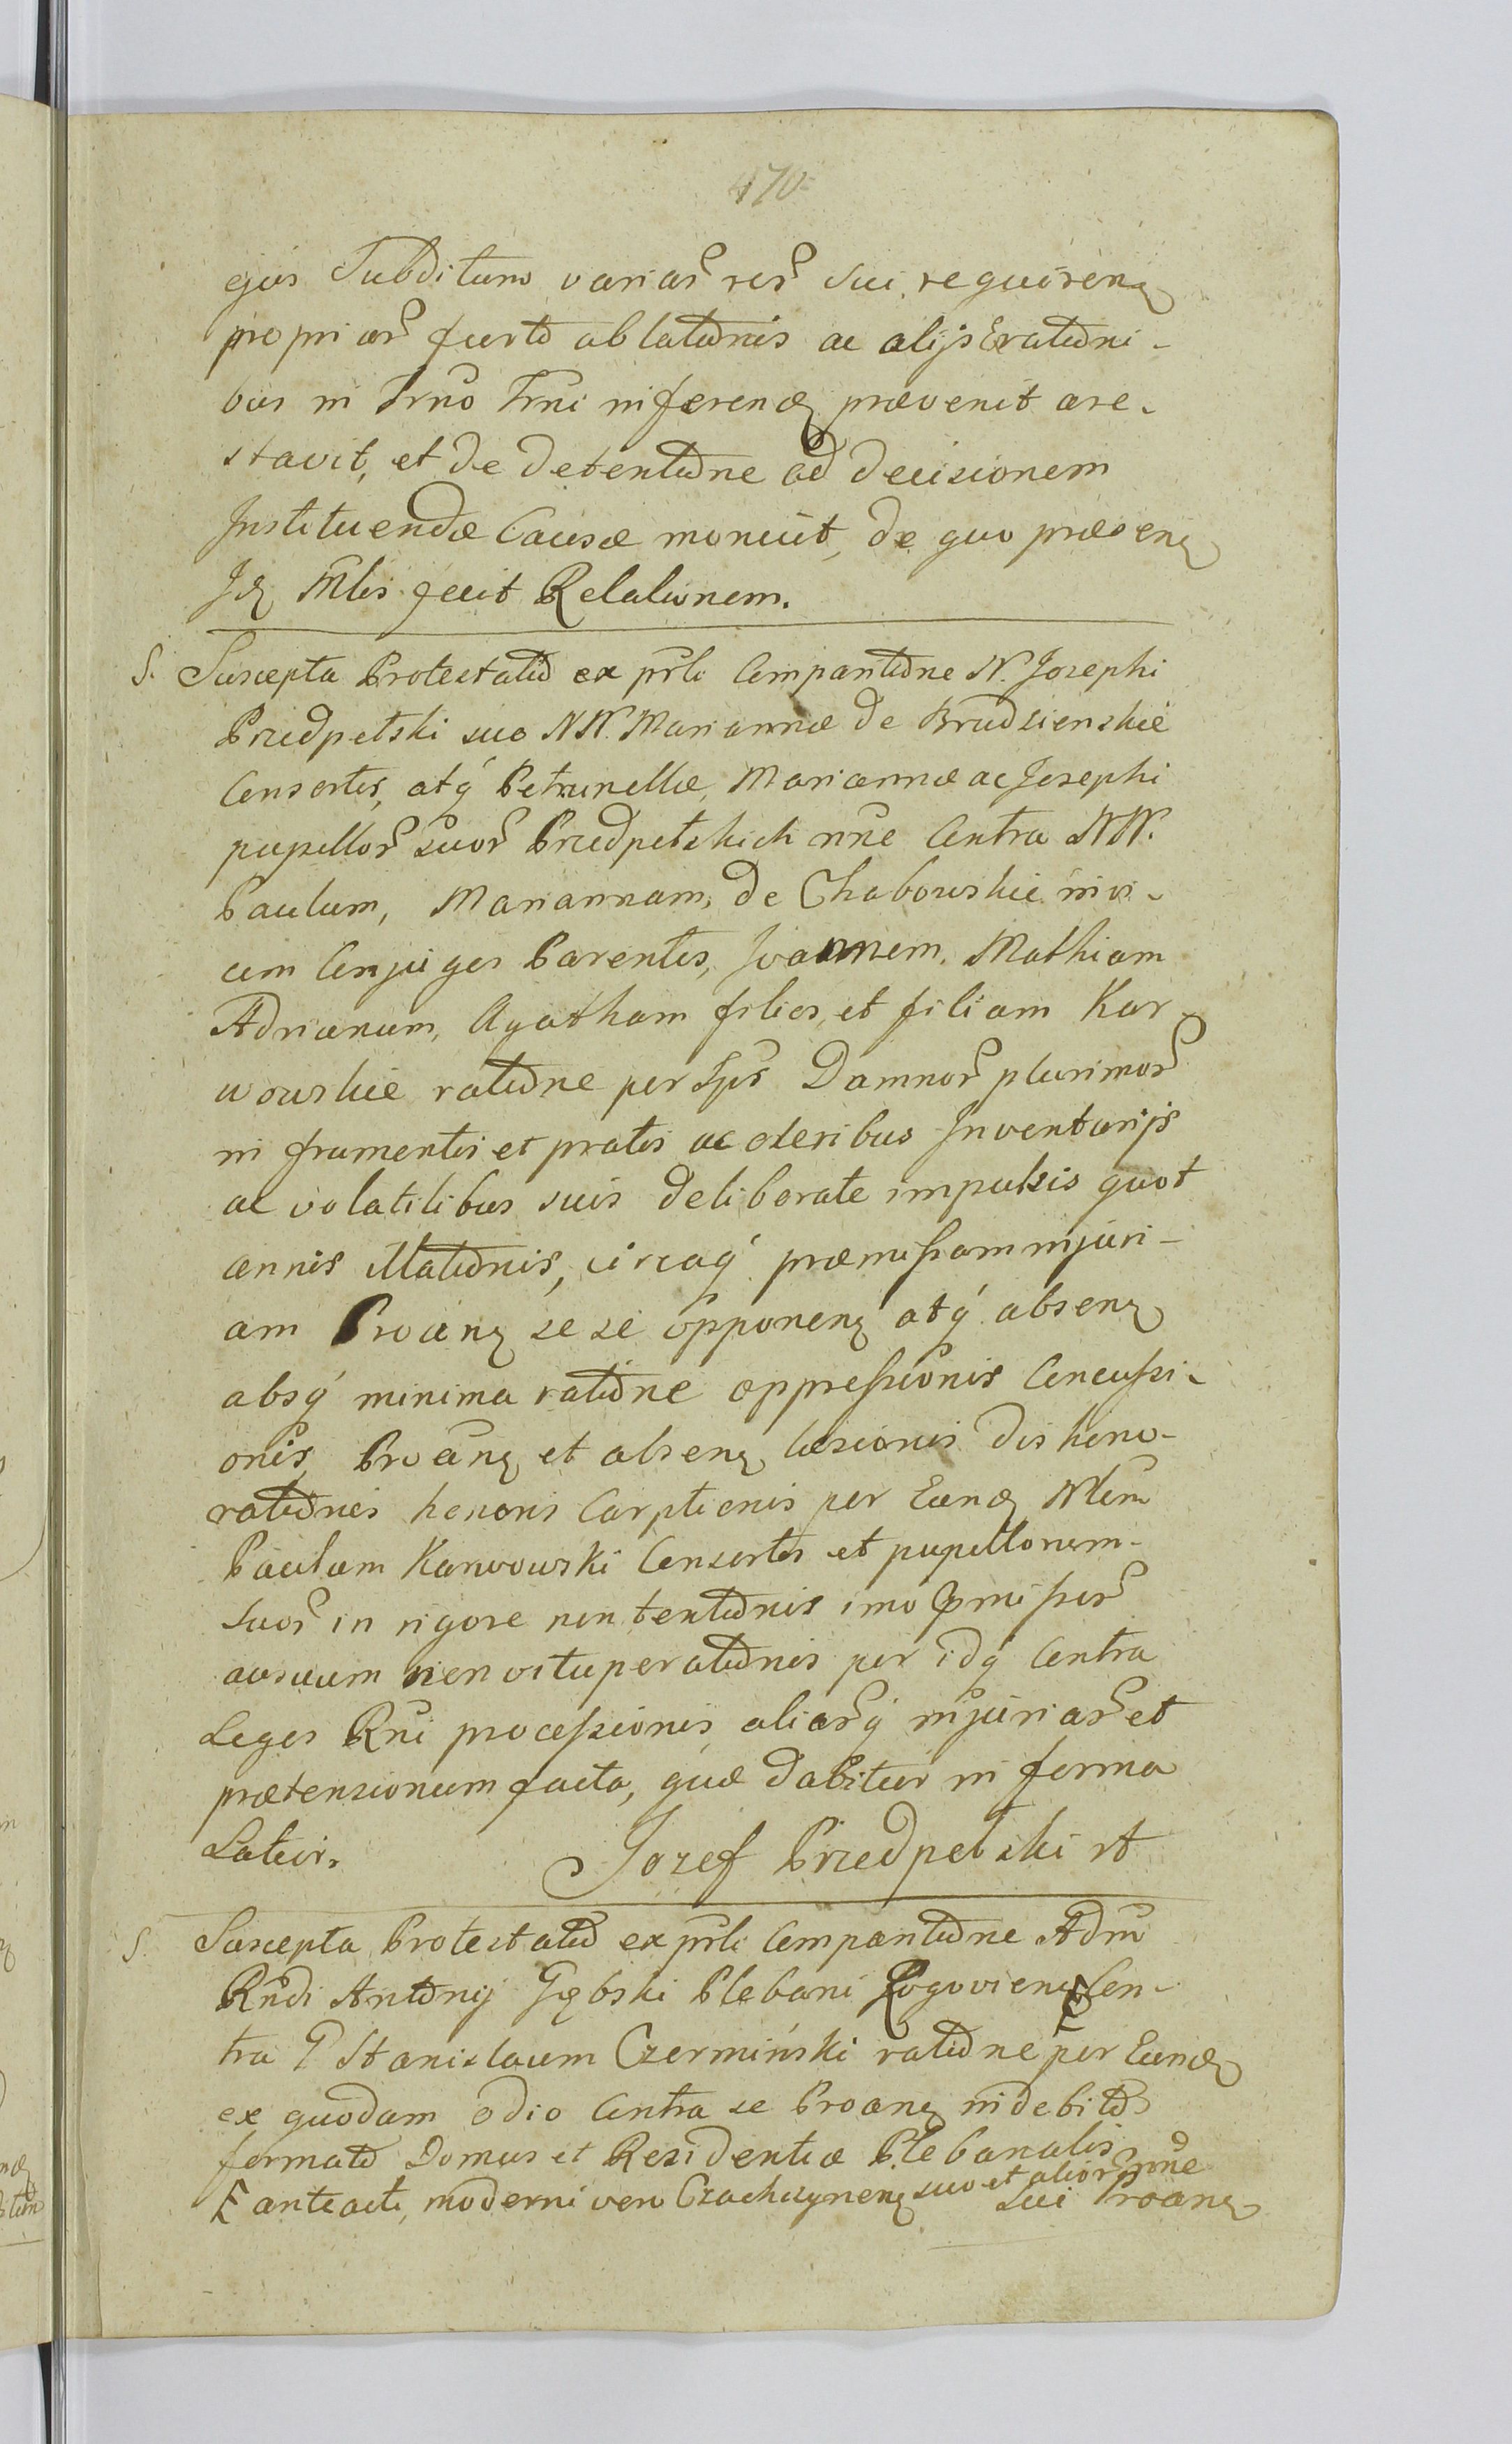 470
ejus Subditum variar̃ rer̃ sui requirenꝫ
propriar̃ furto ablationis ac alijs Erationi-
bus in Trno Trni inferendꝫ prævenit are-
stavit, et de detentione ad decisionem
Instituendæ Causæ monuit, de quo præsenꝫ
Idꝫ Mlis fecit Relationem.
S. Suscepta Protestatio ex prli Comparitione N. Josephi
Przedpełski suo NN. Mariannæ de Brudzienskie
Consortis, atq́ Petrunellæ, Mariannæ ac Josephi
pupillor̃ suor̃ Przedpełskich nñe Contra NN.
Paulum, Mariannam, de Chabowskie invi-
cem Conjuges Parentes, Joannem, Mathiam
Adrianum, Agatham filios, et filiam Kar-
wowskie ratione per Ips̃ Damnor̃ plurimor̃
in frumentis et pratis ac oleribus Inventarijs
ac volatilibus suis deliberate impulsis quot
annis Illationis, circaq́ præmissam injuri-
am Proanꝫ se se opponenꝫ atq́ absenꝫ
absq́ minima ratione oppressionis Concussi-
onis, Proanꝫ et absenꝫ læsionis dishono-
rationis honoris Carptionis per Eundꝫ Nlem
Paulum Karwowski Consortis et pupillorum
suor̃ in rigore non tentionis imo Præmissor̃
ausuum rien vituperationis per idq́ Contra
Leges Rñi processionis, aliar̃q́ injuriar̃ et
prætensionum facta, quæ dabitur in forma
Latior. Jozef Przedpełski st
S. Suscepta Protestatio ex prli Comparitione Adm̃
Rñdi Antonij Gębski Plebani Rogovienꝫ Con-
tra G Stanislaum Czermiński ratione per Eundꝫ
ex quodam odio Contra se Proanꝫ indebito
formato Domus et Residentiæ Plebanalis
anteacti, moderni vero Czachczynenꝫ suo et alior̃ nñe
sui Proanꝫ